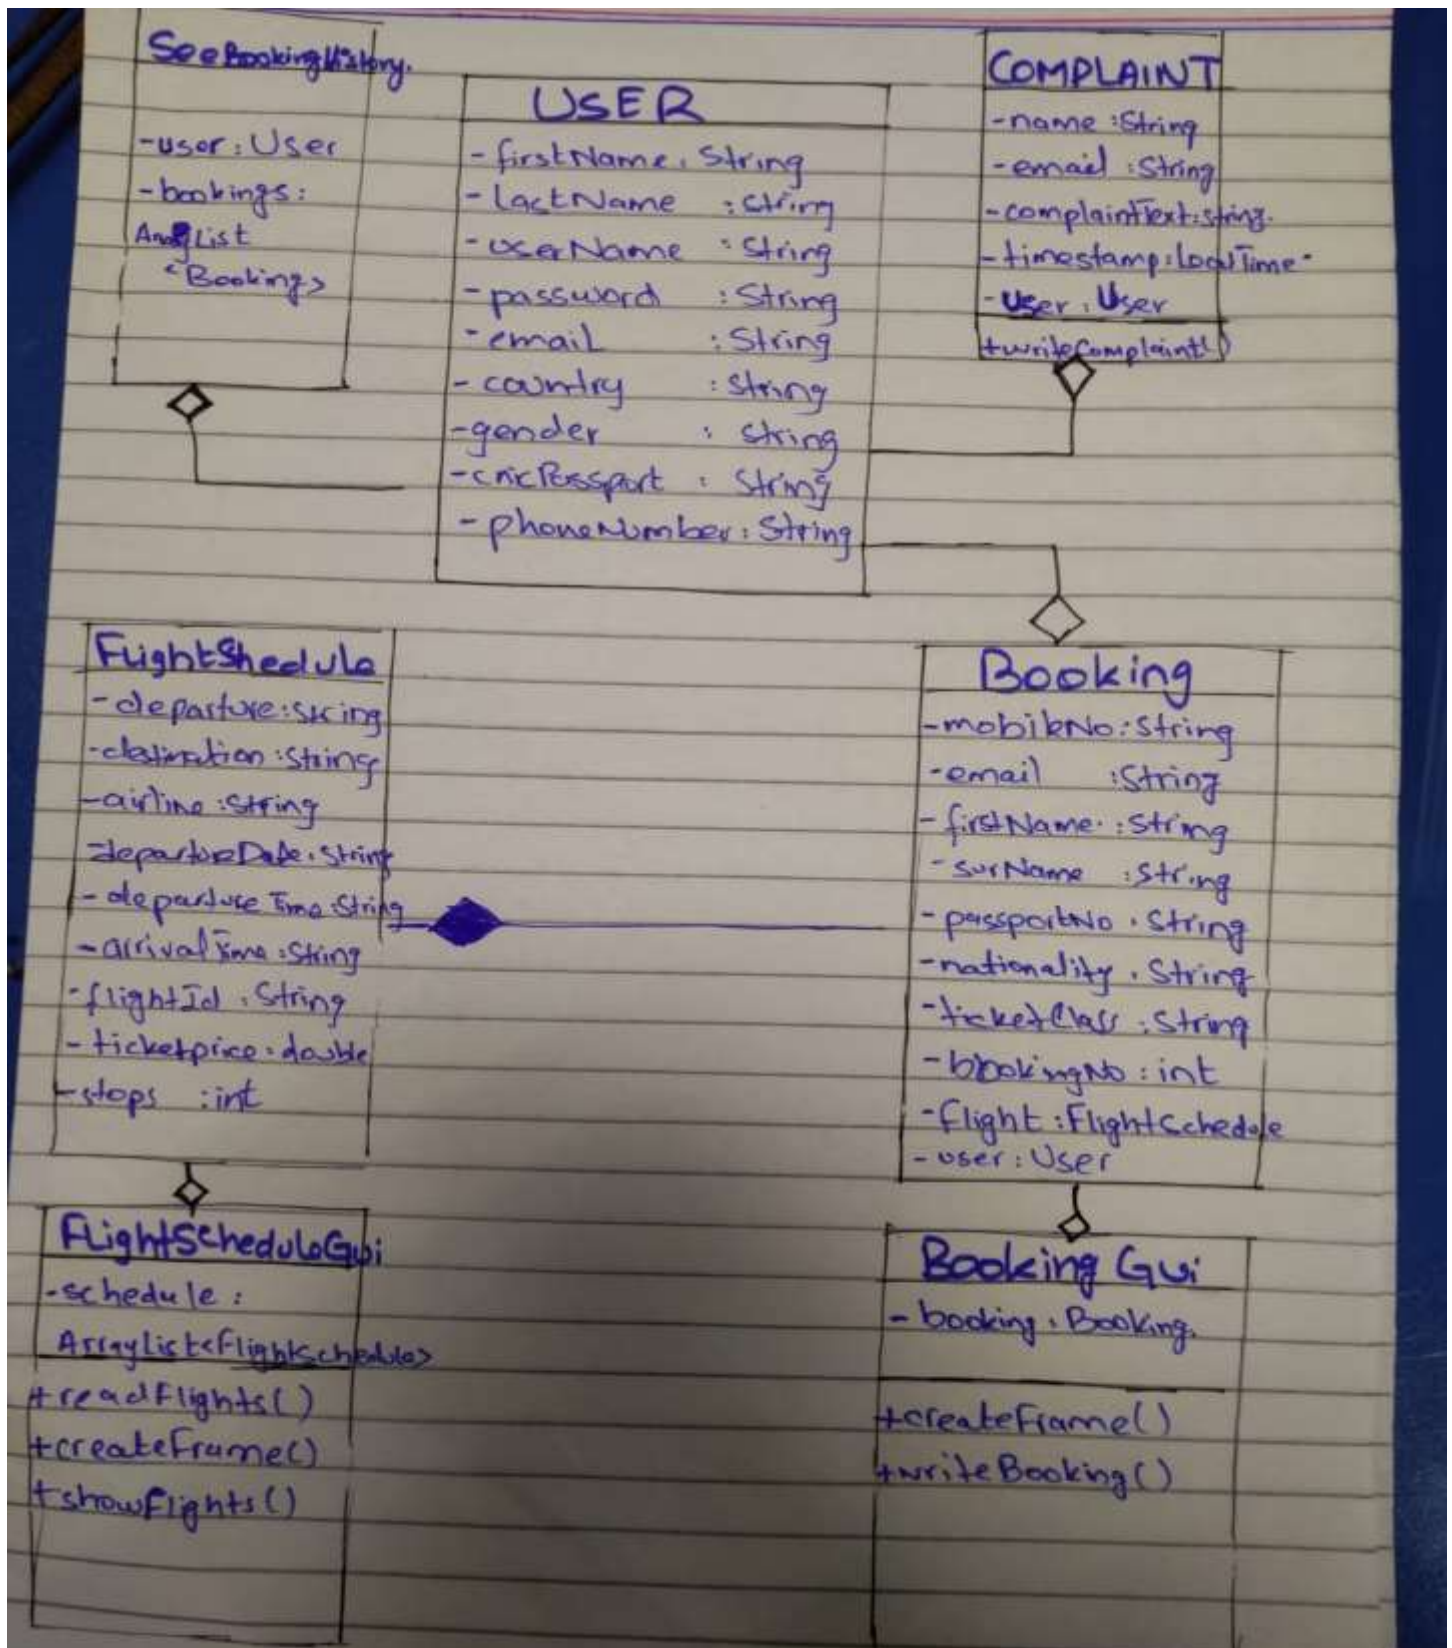 SeeBookingHistory.
-user : User
-bookings :
ArrayList
<Booking>
USER
- firstName : String
- lastName : String
- userName : String
- password : String
- email : String
- country : String
- gender : String
- cnicPassport : String
- phoneNumber : String
COMPLAINT
-name : String
-email : String
-complaintText : String.
-timestamp : LocalTime
-User : User
+writeComplaint()
FlightShedule
-departure : String
-destination : String
-airline : String
-departureDate : String
-departure Time : String
-arrivalTime : String
-flightId : String
-ticketprice : double
-stops : int
Booking
-mobileNo : String
-email : String
-firstName : String
-surName : String
-passportNo : String
-nationality : String
-ticketClass : String
-bookingNo : int
-flight : FlightSchedule
-user : User
FlightScheduleGui
-schedule :
ArrayList<FlightSchedule>
+readFlights()
+createFrame()
+showFlights()
Booking Gui
- booking : Booking.
+createFrame()
+writeBooking()